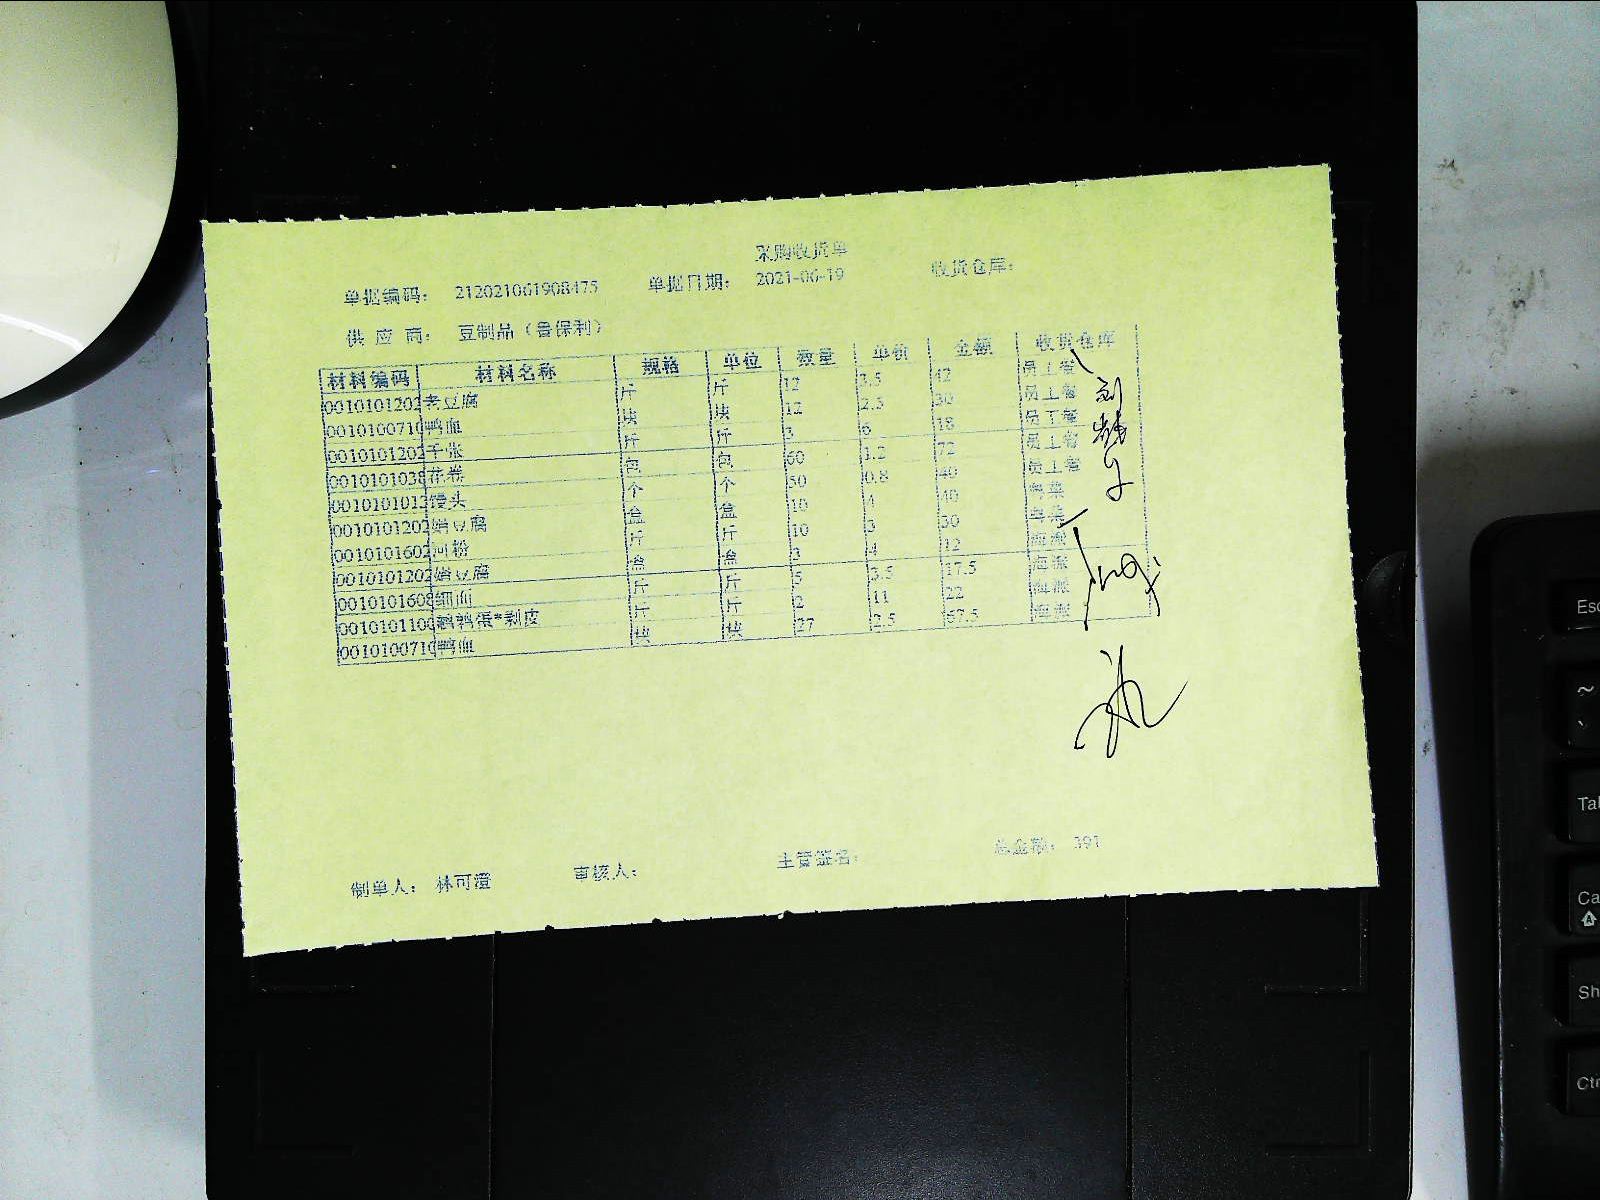 采购收货单
单据编码： 212021061908475 单据日期： 2021-06-19 收货仓库：
供 应 商： 豆制品（鲁保利）
材料编码 材料名称 规格 单位 数量 单价 金额 收货仓库
0010101202 老豆腐 斤 斤 12 3.5 42 员工餐
0010100710 鸭血 块 块 12 2.5 30 员工餐
0010101202 千张 斤 斤 3 6 18 员工餐
0010101038 花卷 包 包 60 1.2 72 员工餐
0010101013 馒头 个 个 50 0.8 40 员工餐
0010101202 嫩豆腐 盒 盒 10 4 40 粤菜
0010101602 河粉 斤 斤 10 3 30 粤菜
0010101202 嫩豆腐 盒 盒 3 4 12 海派
0010101608 细面 斤 斤 5 3.5 17.5 海派
0010101100 鹌鹑蛋*剥皮 斤 斤 2 11 22 海派
0010100710 鸭血 块 块 27 2.5 67.5 海派
制单人： 林可澄 审核人： 主管签名： 总金额： 391
Esc
~
Tab
Ca
Sh
Ctr